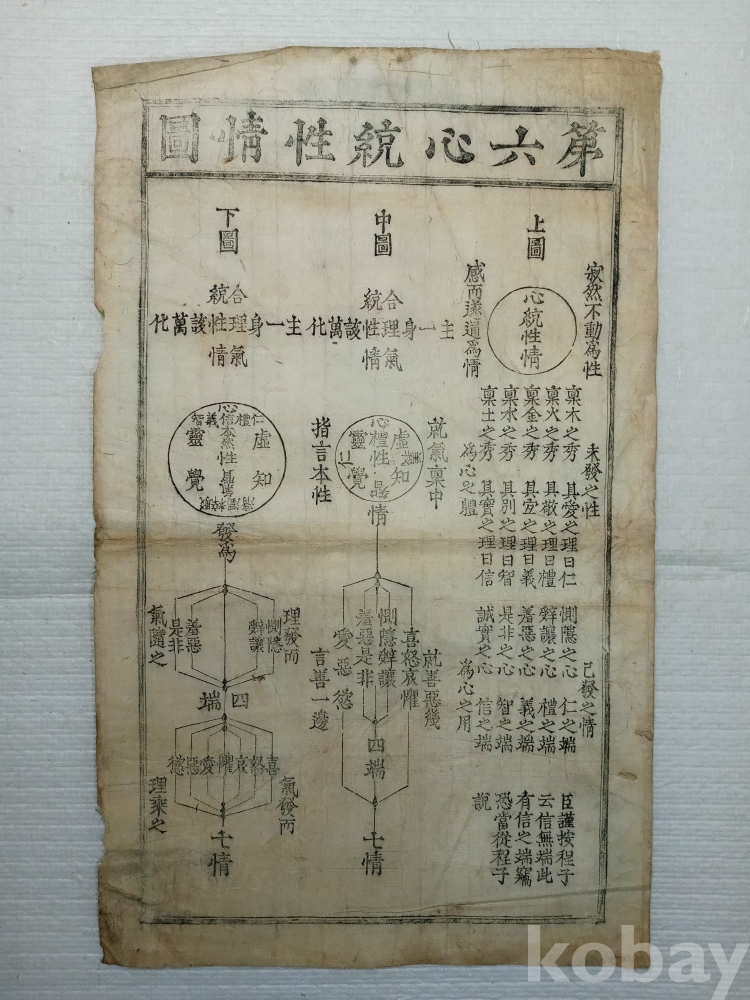 第六心統性情圖
上圖
寂然不動爲性
心統性情
感而遂通爲情
未發之性
稟木之秀 具愛之理曰仁
稟火之秀 具敬之理曰禮
稟金之秀 具宜之理曰義
稟水之秀 具別之理曰智
稟土之秀 具實之理曰信
爲心之體
已發之情
惻隱之心 仁之端
辭讓之心 禮之端
羞惡之心 義之端
是非之心 智之端
誠實之心 信之端
爲心之用
臣謹按程子
云信無端此
有信之端竊
恐當從程子
說
中圖
合理氣
統性情
主一身該萬化
就氣稟中
虛
知
義
心
禮性智
靈
覺
仁
指言本性
情
就善惡幾
喜怒哀懼
惻隱辭讓
羞惡是非
愛惡慾
言善一邊
四端
七情
下圖
合理氣
統性情
主一身該萬化
心
仁禮信義智
虛
知
本然性氣質
靈
覺
清濁粹駁
發爲
理發而
惻隱
辭讓
羞惡
是非
氣隨之
四端
氣發而
喜怒哀懼愛惡慾
理乘之
七情
kobay